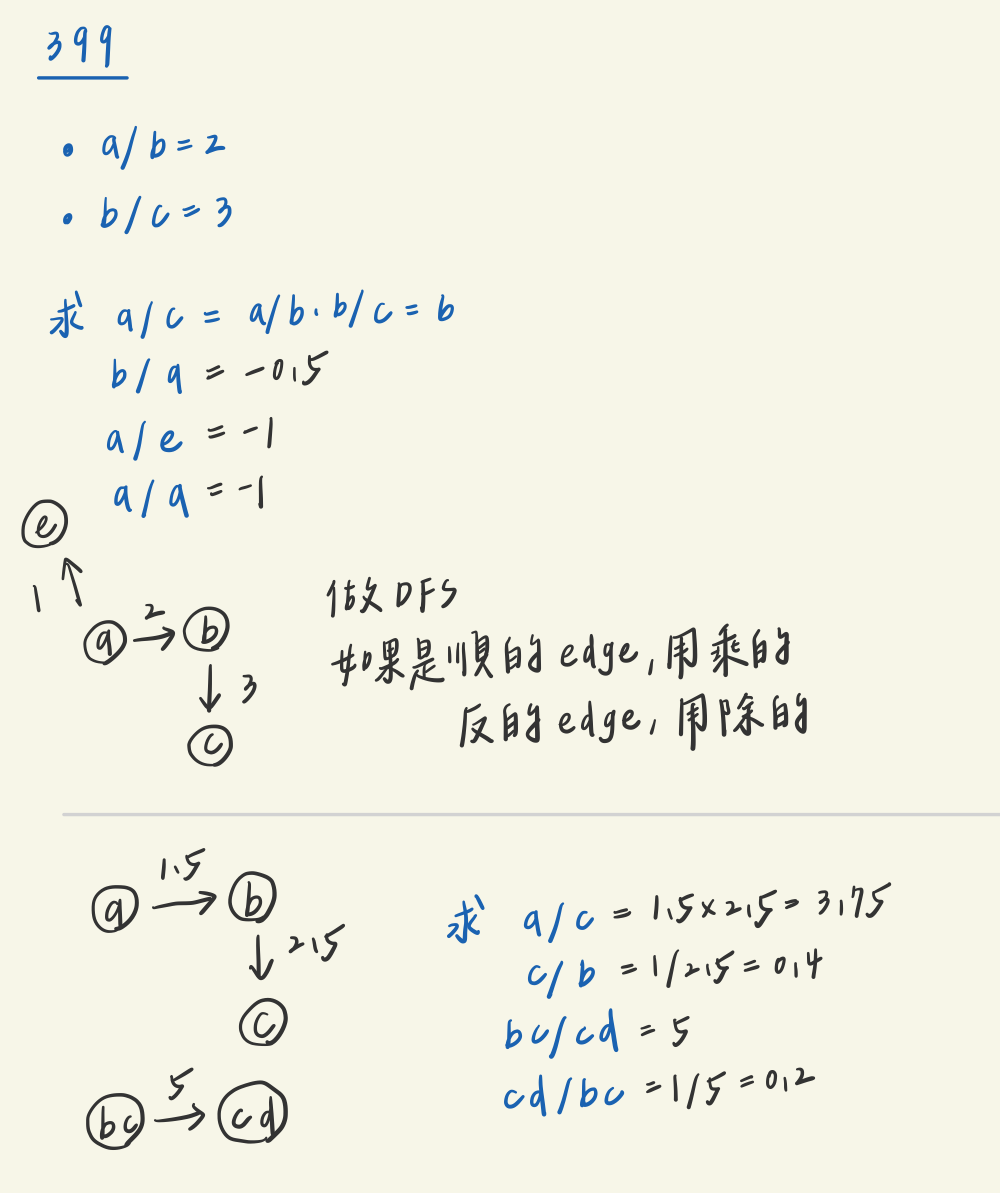 399
• a/b = 2
• b/c = 3
求 a/c = a/b · b/c = b
b/a = -0.5
a/e = -1
a/a = -1
e
1
a 2 b
3
c
做 DFS
如果是順的 edge, 用乘的
反的 edge, 用除的
a 1.5 b
2.5
c
bc 5 cd
求 a/c = 1.5 × 2.5 = 3.75
c/b = 1/2.5 = 0.4
bc/cd = 5
cd/bc = 1/5 = 0.2